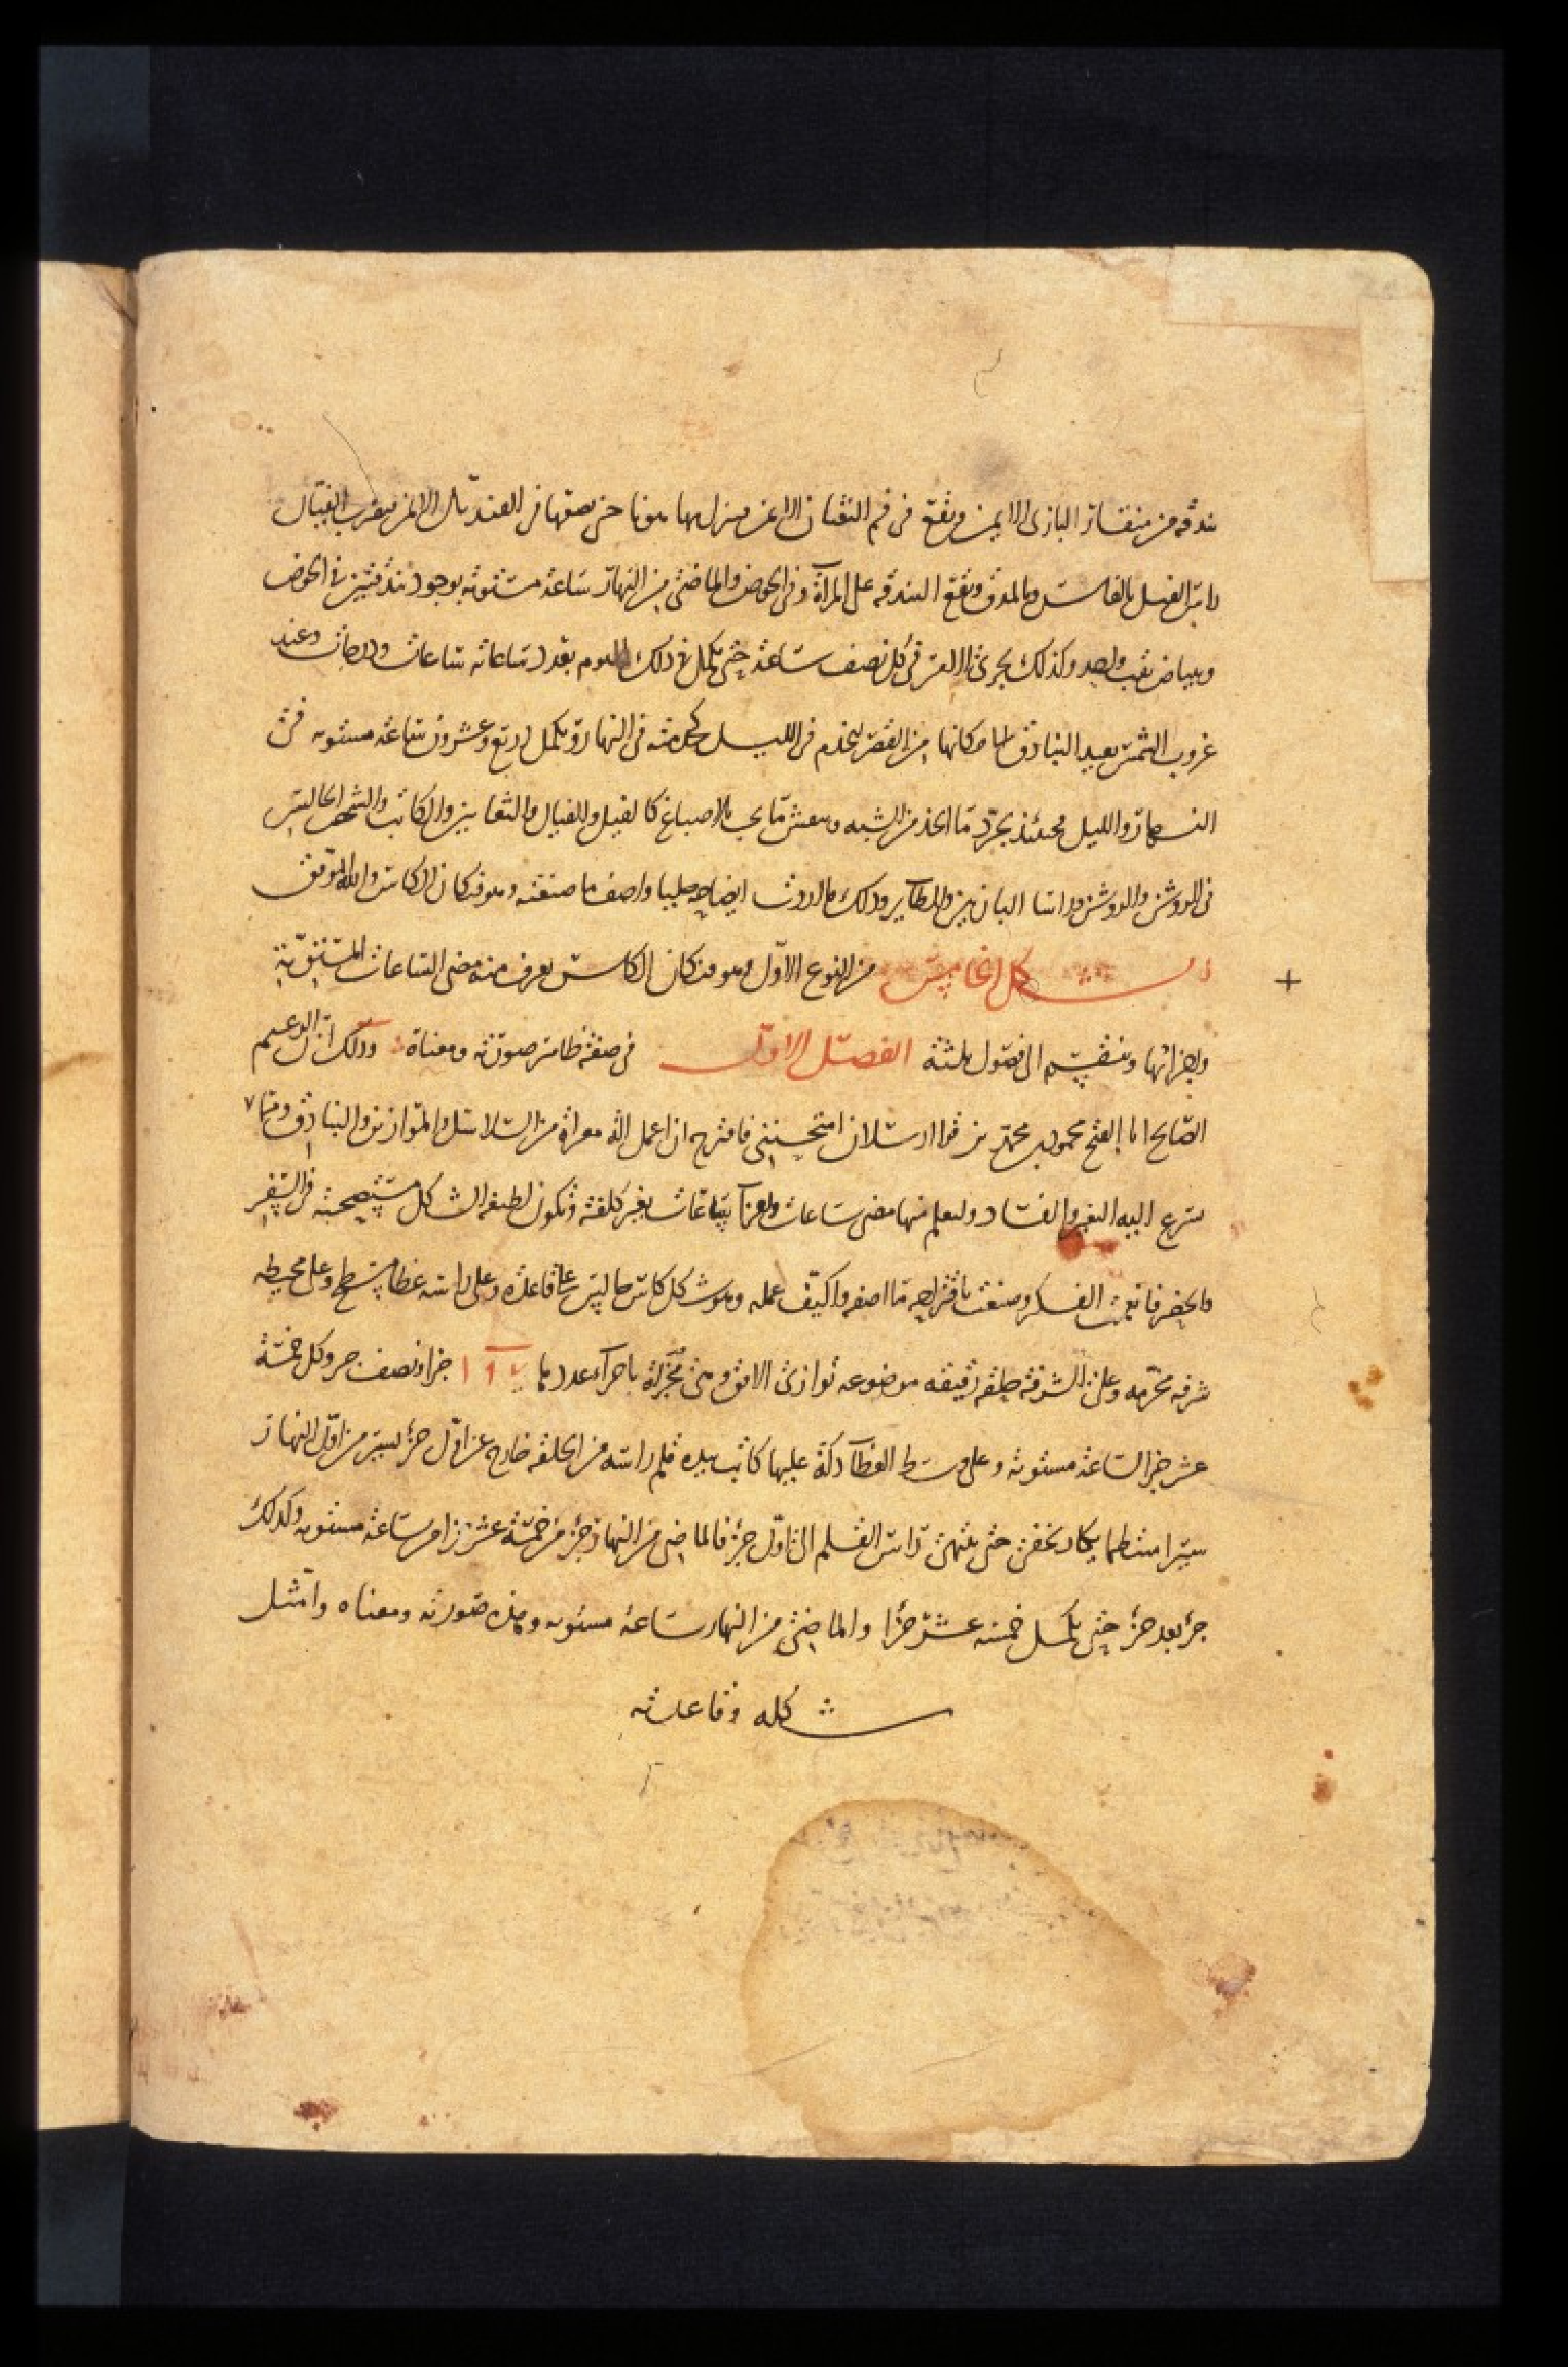 بندقة من منقار البازي الايمن وتقع في فم الثعبان الايمن وينزل بها هونا حتى يضعها في القنديل الايمن فيضرب الفيال
راس الفيل بالفاس وبالمدق وتقع البندقة على المرآة وفي الحوض والماضي من النهار ساعة مستوية بوجود بندقتين في الحوض
وبياض ثقب واحد وكذلك يجري الامر في كل نصف ساعة حتى يكمل في ذلك اليوم بعدد ساعاته ساعات ودرجات وعند
غروب الشمس يعيد البنادق الى مكانها من القصر لتخدم في الليل كخدمته في النهار ويكمل اربع وعشرون ساعة مستوية في
النهار والليل فحينئذ يجرد ما اتخذ من الشبه وينقش بالاصباغ كالفيل والفيال والثعابين والكاتب والشخص الجالس
في الروشن والروشن وراسا البازيين والطاير وذلك ما اردت ايضاحه جليا واصف ما صنعته وهو فنكان الكاس والله الموفق
الشكل الخامس من النوع الاول وهو فنكان الكاس يعرف منه مضي الساعات المستوية
واجزائها وينقسم الى فصول ثلثة الفصل الاول في صفة ظاهر صورته ومعناه وذلك ان الزعيم
الصالح ابا الفتح محمود بن محمد بن قرا ارسلان امتحنني فاقترح ان اعمل الة معراة من السلاسل والموازين والبنادق ومما
يسرع اليه التغير والفساد وليعلم منها مضي ساعات واجزا ساعات بغير كلفة وتكون لطيفة الشكل مستصحبة في السفر
والحضر فانعمت الفكر وصنعت باقتراحه ما اصفه واكيف عمله وهو شكل كاس جالس على قاعدة وعلى راسه غطا مسطح وعلى محيطه
شرفة مخرمة وعلى الشرفة حلقة دقيقة موضوعة توازي الافق وهي مجزاة باجزاء عددها ٢١٧ جزا ونصف جزو كل خمسة
عشر جزا لساعة مستوية وعلى وسط الغطا دكة عليها كاتب بيده قلم راسه من الحلقة خارج عن اول جزء يسير من اول النهار
سيرا منتظما يكاد يخفى حتى ينتهي راس القلم الى اول جزء فالماضي من النهار جزء من خمسة عشر جزا من ساعة مستوية وكذلك
جزء بعد جزء حتى يكمل خمسة عشر جزءا والماضي من النهار ساعة مستوية وهذه صورته ومعناه وامثل
شكله وقاعدته